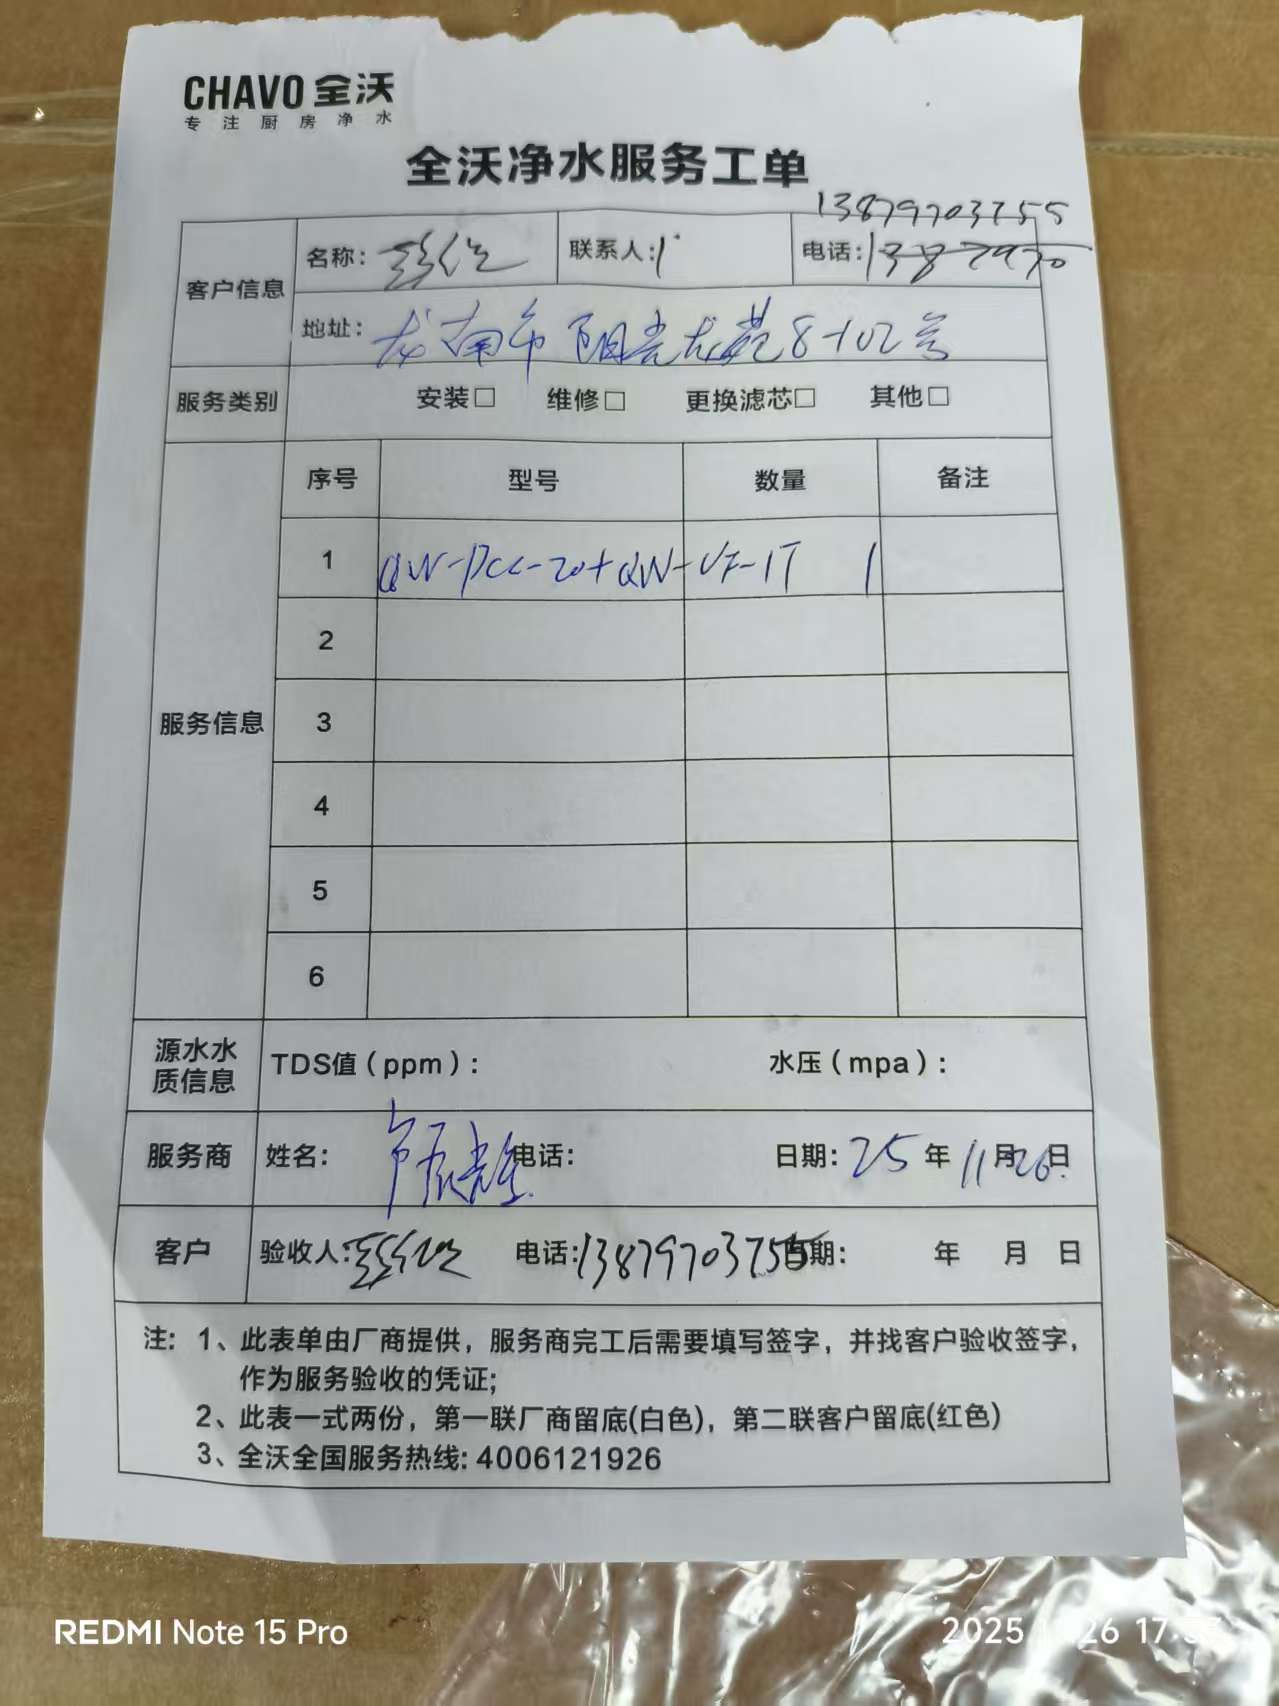 CHAVO 全沃
专注厨房净水
全沃净水服务工单
13879703755
客户信息
名称:
联系人:
电话:
地址: 龙南市阳光龙苑8-102号
服务类别 安装□ 维修□ 更换滤芯□ 其他□
服务信息
序号 型号 数量 备注
1 QW-DCC-20+QW-UF-1T 1
2
3
4
5
6
源水水质信息 TDS值(ppm): 水压(mpa):
服务商 姓名: 电话: 日期: 25年11月26日
客户 验收人: 电话: 13879703755 日期: 年 月 日
注: 1、此表单由厂商提供,服务商完工后需要填写签字,并找客户验收签字,
作为服务验收的凭证;
2、此表一式两份,第一联厂商留底(白色),第二联客户留底(红色)
3、全沃全国服务热线: 4006121926
REDMI Note 15 Pro